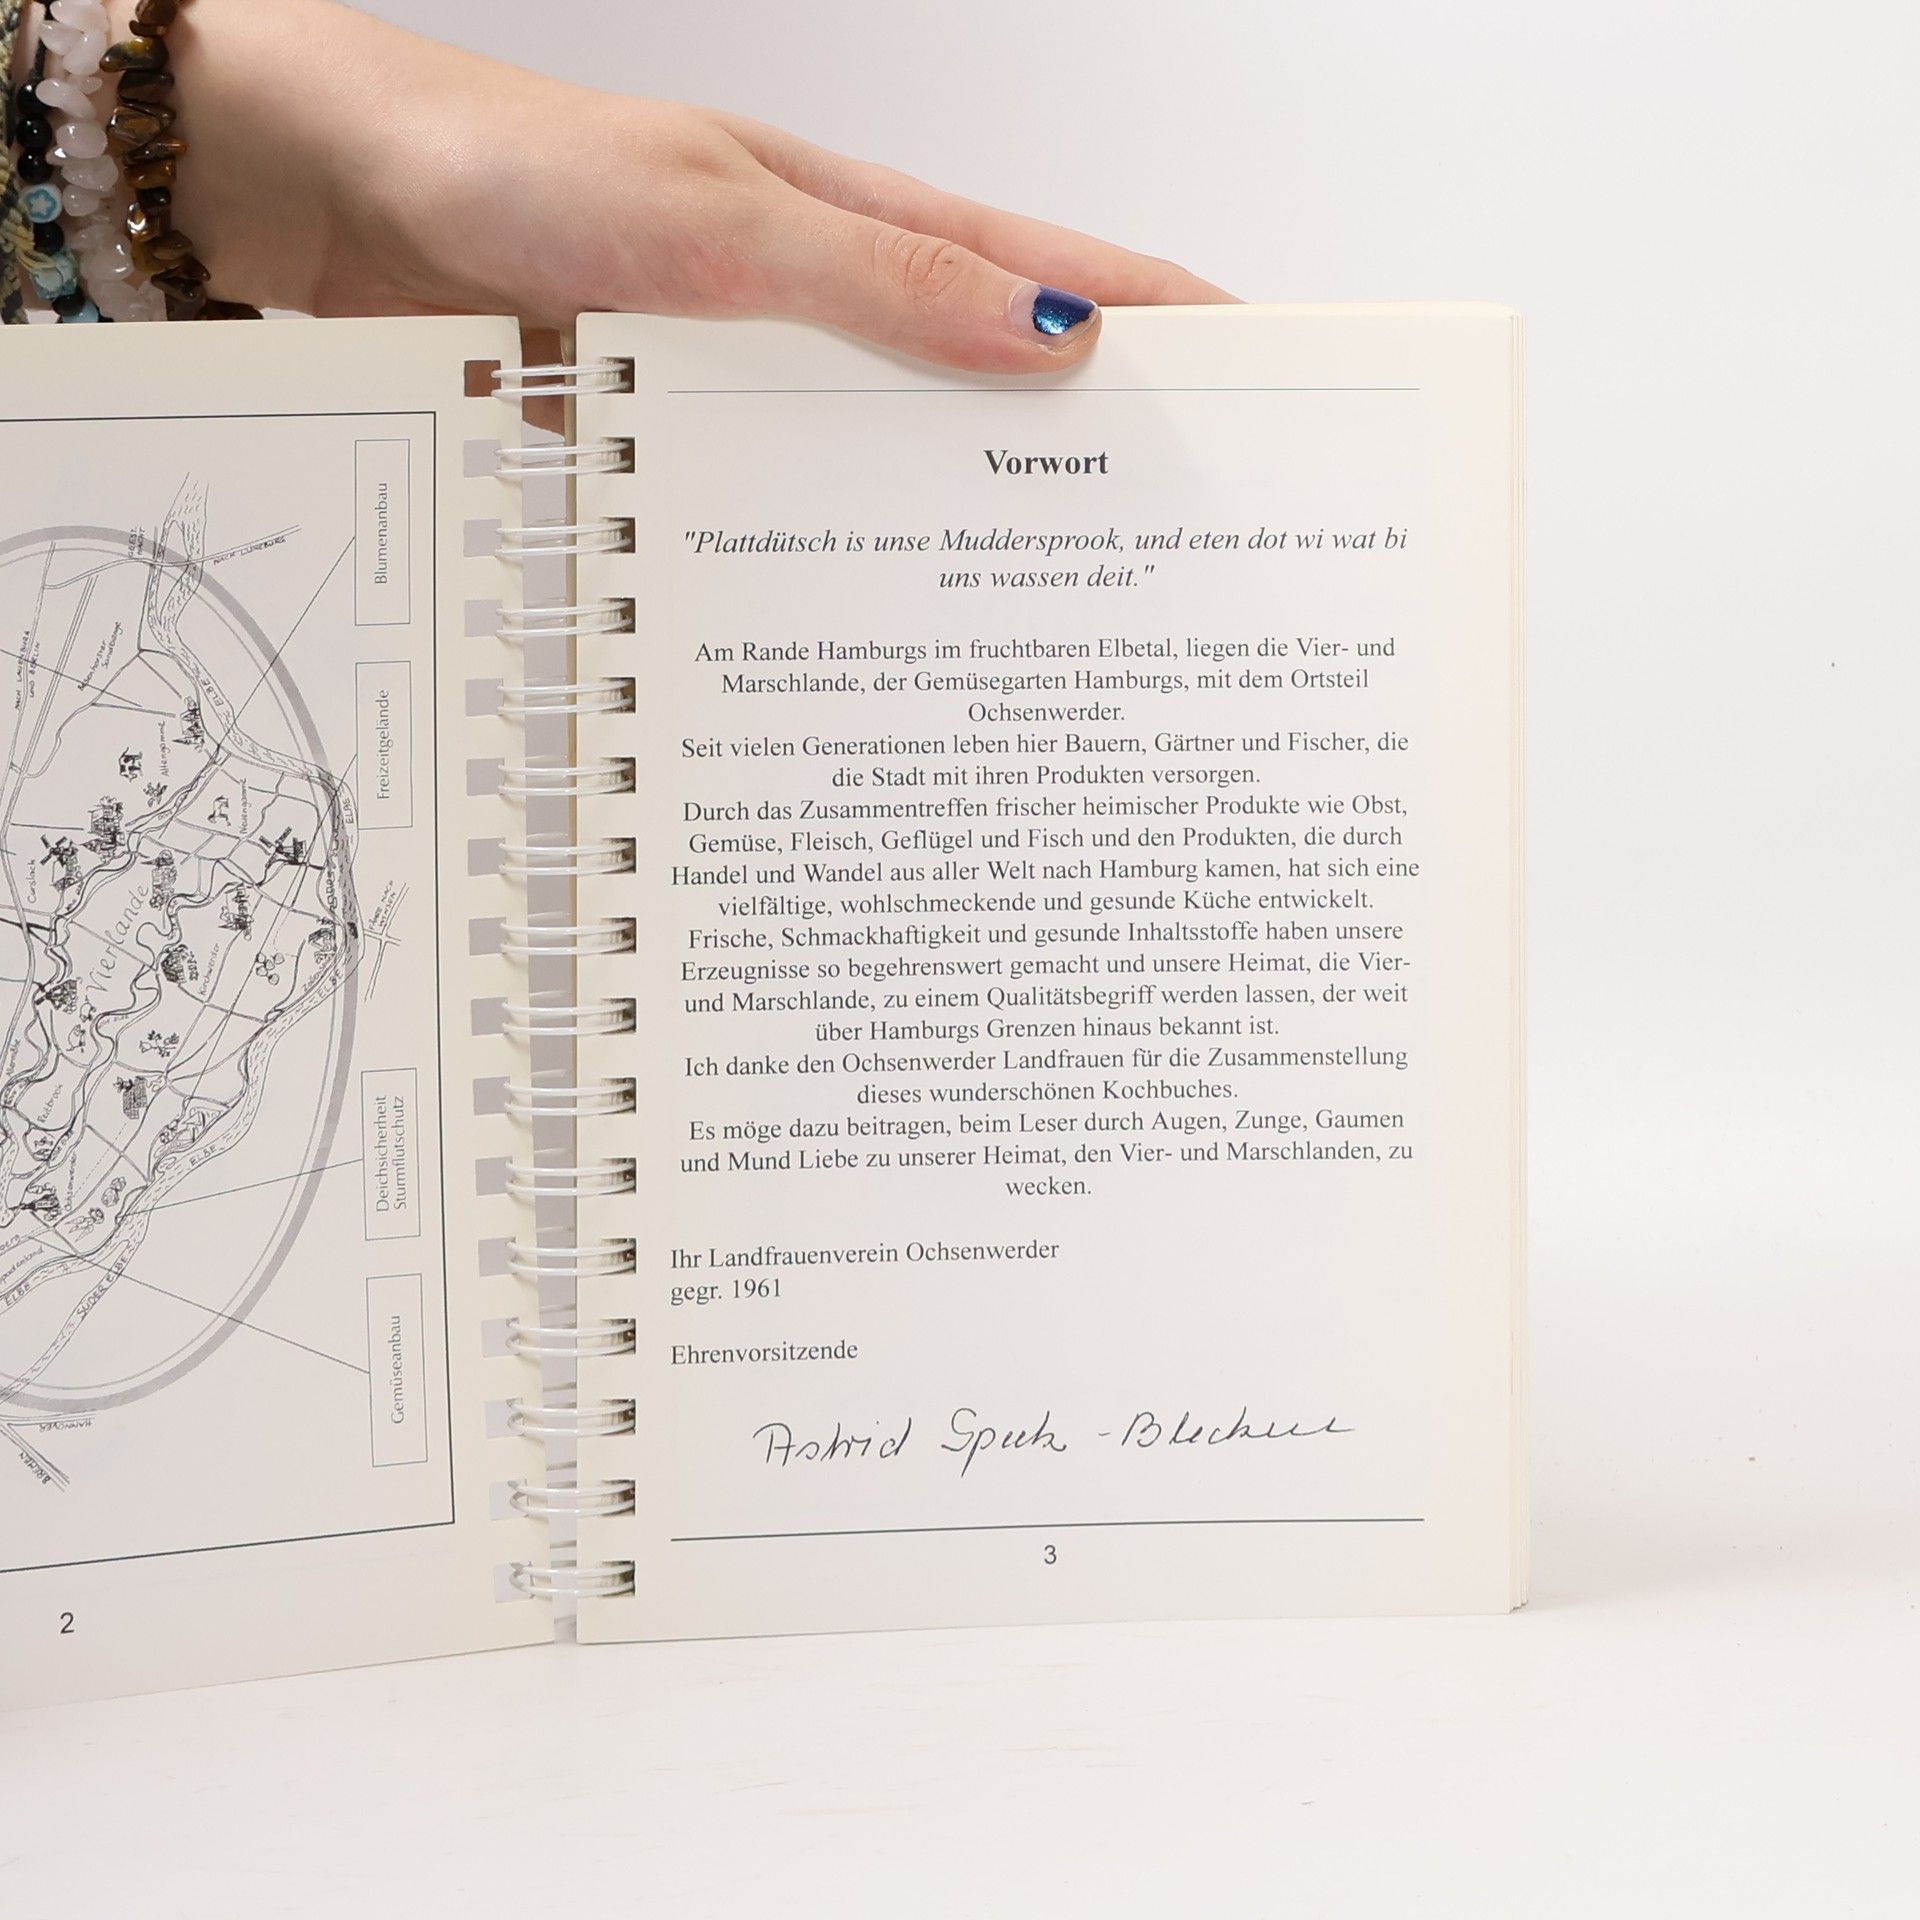 Blumenanbau
Freizeitgelände
Deichsicherheit
Sturmflutschutz
Gemüseanbau
NACH LÜNEBURG
NACH LAUENBURG
UND BERLIN
ELBE
Altengamme
Neuengamme
ELBE
Curslack
Vierlande
Kirchwerder
Zollen
ELBE
Reitbrook
Ochsenwerder
ELBE
Spadenland
ELBE
SÜDER ELBE
HANNOVER
BREMEN
2
Vorwort
"Plattdütsch is unse Muddersprook, und eten dot wi wat bi
uns wassen deit."
Am Rande Hamburgs im fruchtbaren Elbetal, liegen die Vier- und
Marschlande, der Gemüsegarten Hamburgs, mit dem Ortsteil
Ochsenwerder.
Seit vielen Generationen leben hier Bauern, Gärtner und Fischer, die
die Stadt mit ihren Produkten versorgen.
Durch das Zusammentreffen frischer heimischer Produkte wie Obst,
Gemüse, Fleisch, Geflügel und Fisch und den Produkten, die durch
Handel und Wandel aus aller Welt nach Hamburg kamen, hat sich eine
vielfältige, wohlschmeckende und gesunde Küche entwickelt.
Frische, Schmackhaftigkeit und gesunde Inhaltsstoffe haben unsere
Erzeugnisse so begehrenswert gemacht und unsere Heimat, die Vier-
und Marschlande, zu einem Qualitätsbegriff werden lassen, der weit
über Hamburgs Grenzen hinaus bekannt ist.
Ich danke den Ochsenwerder Landfrauen für die Zusammenstellung
dieses wunderschönen Kochbuches.
Es möge dazu beitragen, beim Leser durch Augen, Zunge, Gaumen
und Mund Liebe zu unserer Heimat, den Vier- und Marschlanden, zu
wecken.
Ihr Landfrauenverein Ochsenwerder
gegr. 1961
Ehrenvorsitzende
Astrid Speck - Blecken
3